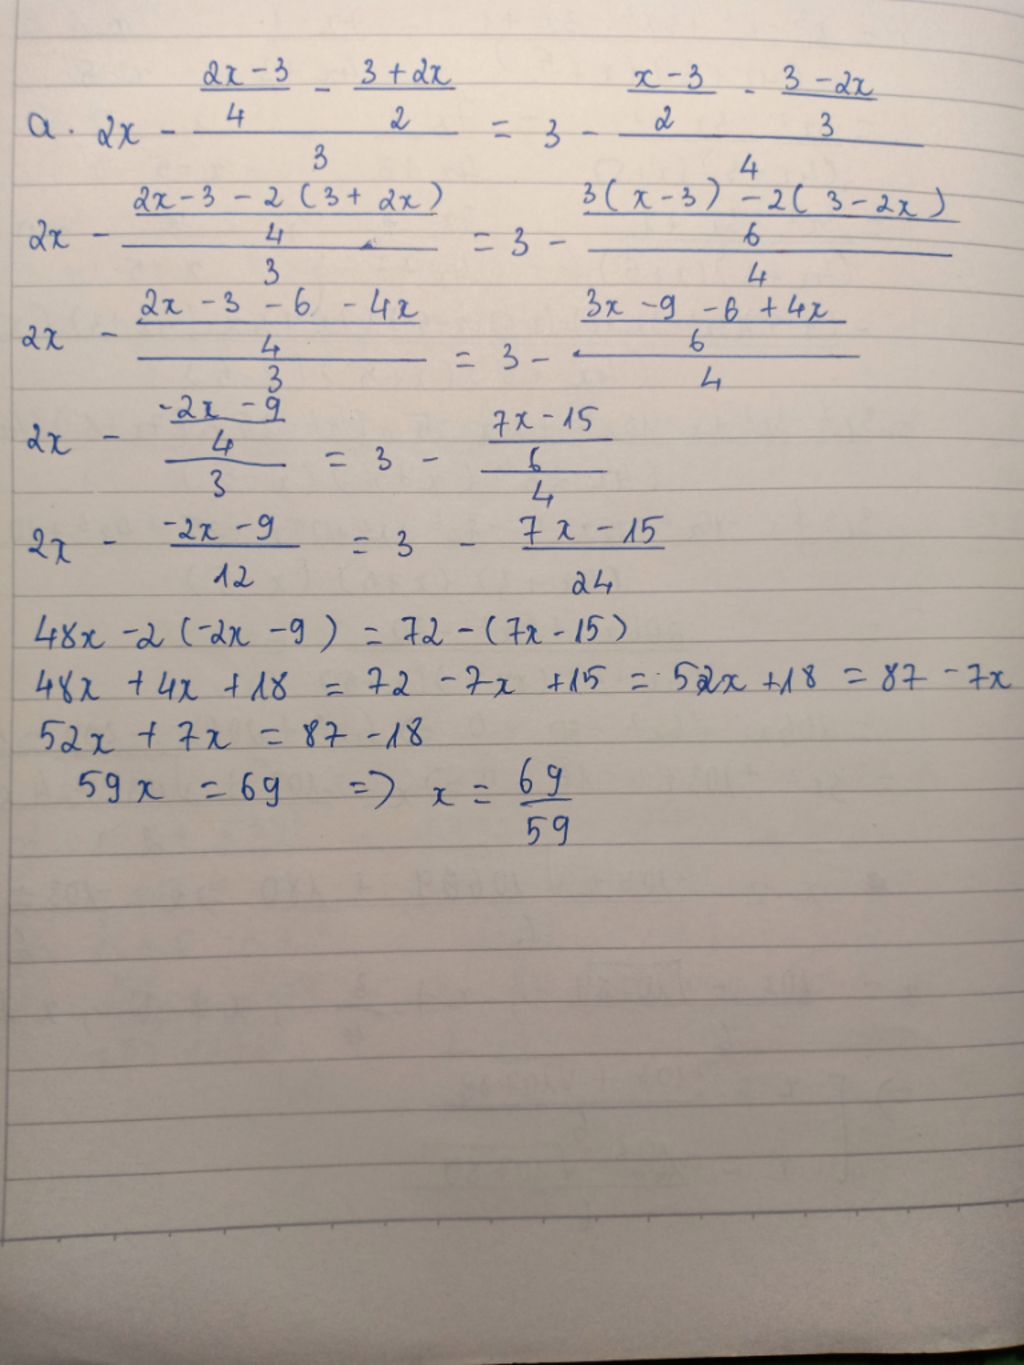 a. 2x - ((2x-3)/4 - (3+2x)/2)/3 = 3 - ((x-3)/2 - (3-2x)/3)/4
2x - ((2x-3-2(3+2x))/4)/3 = 3 - ((3(x-3)-2(3-2x))/6)/4
2x - ((2x-3-6-4x)/4)/3 = 3 - ((3x-9-6+4x)/6)/4
2x - ((-2x-9)/4)/3 = 3 - ((7x-15)/6)/4
2x - (-2x-9)/12 = 3 - (7x-15)/24
48x -2(-2x-9) = 72-(7x-15)
48x +4x +18 = 72 -7x +15 = 52x +18 = 87 -7x
52x + 7x = 87 -18
59x = 69 => x = 69/59